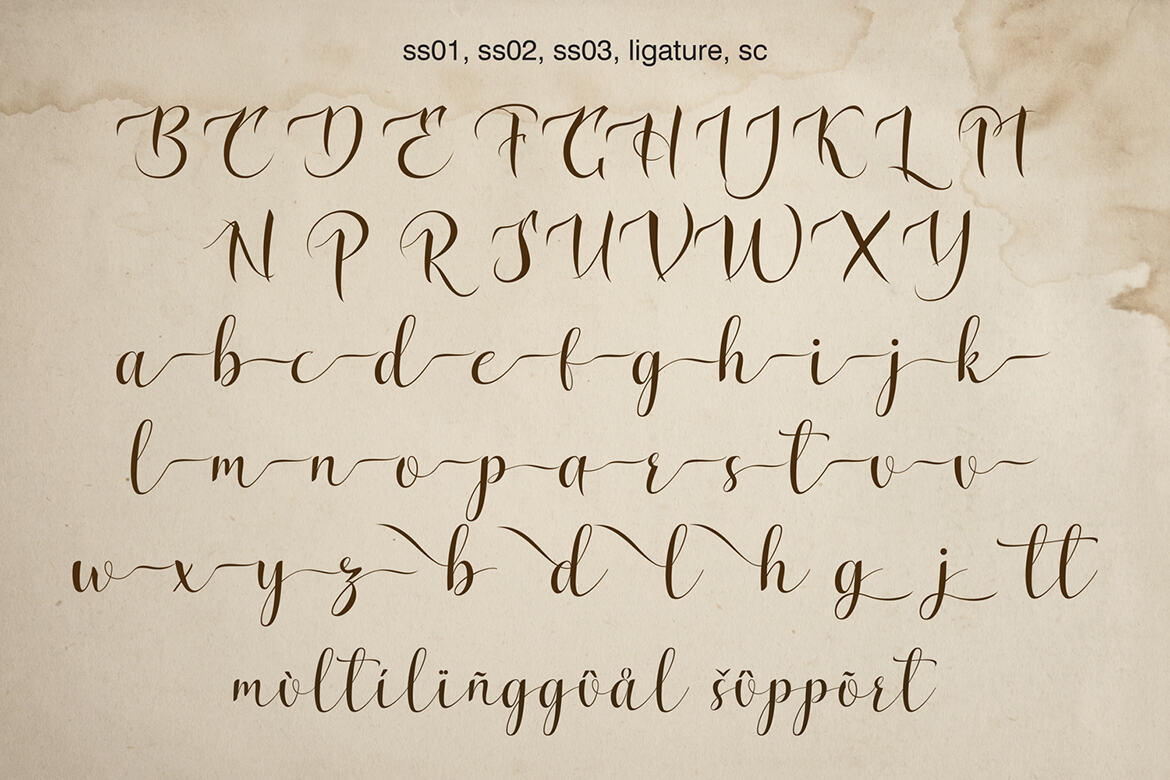 ss01, ss02, ss03, ligature, sc
B C D E F G H I J K L M
N P R S U V W X Y
a b c d e f g h i j k
l m n o p a r s t u v
w x y z b d l h g j tt
mùltílïñggûål šûppõrt